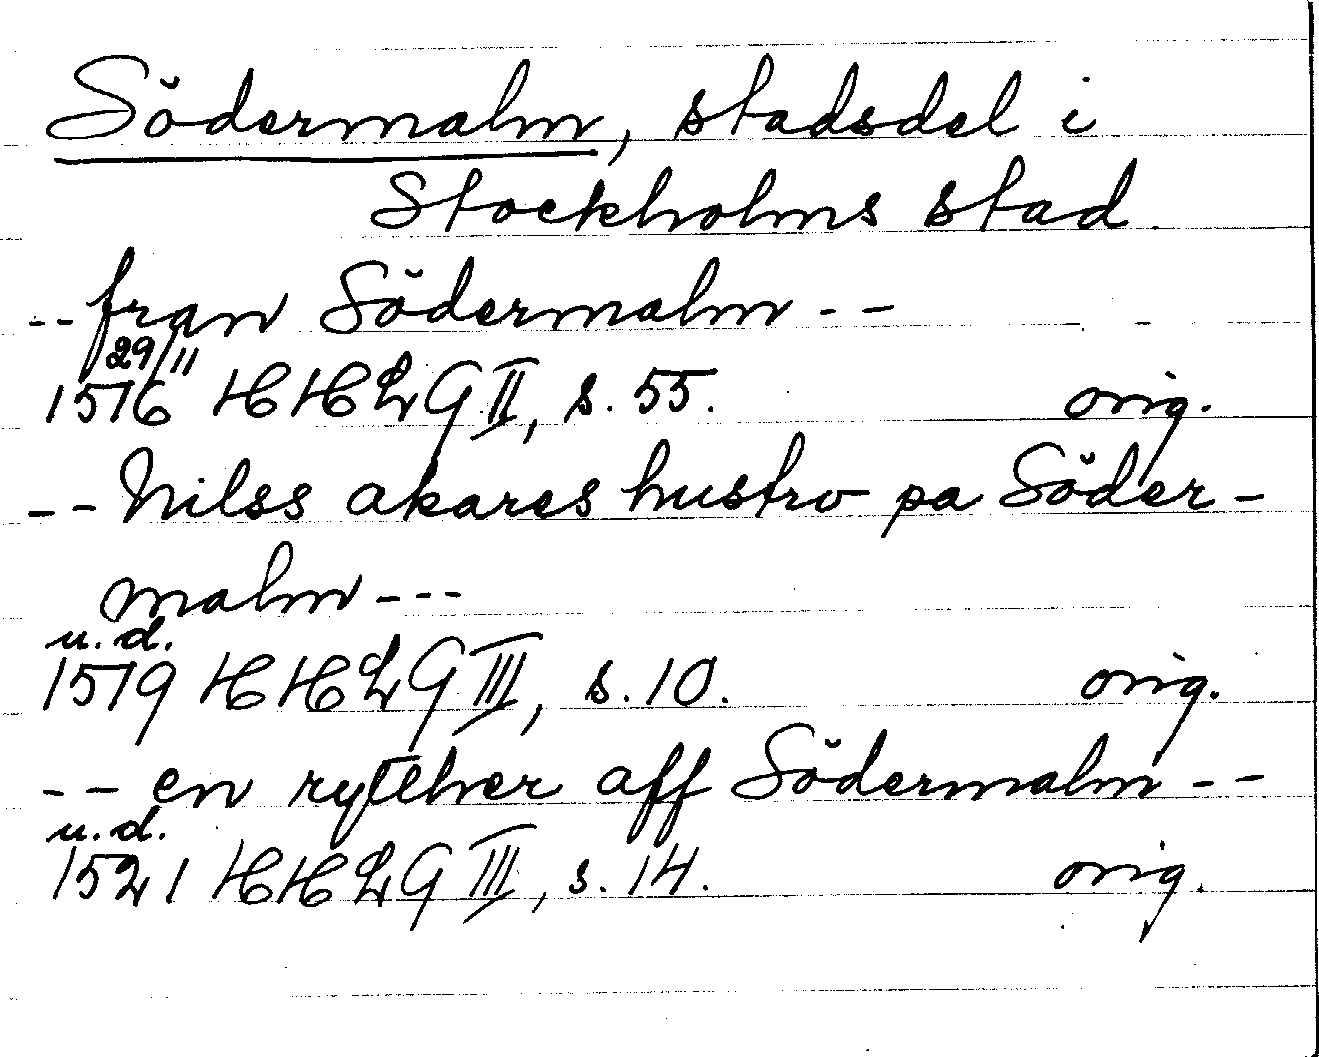 Södermalm, stadsdel i
Stockholms stad.
-- fran Södermalm --
29/11
1576 HHLG II, s. 55. orig.
-- Nilss akares hustro pa Söder-
malm ---
u. d.
1579 HHLG III, s. 10. orig.
-- en rytther aff Södermalm --
u. d.
1521 HHLG III, s. 14. orig.